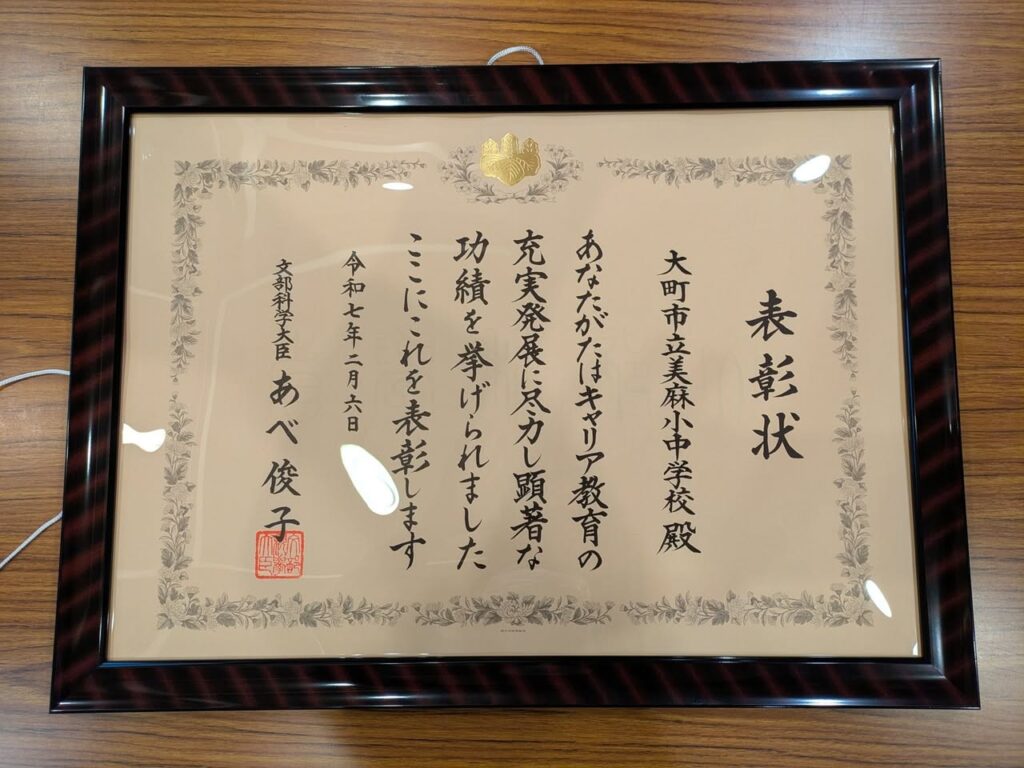 表彰状
大町市立美麻小中学校 殿
あなたがたはキャリア教育の
充実発展に尽力し顕著な
功績を挙げられました
ここにこれを表彰します
令和七年二月六日
文部科学大臣 あべ俊子